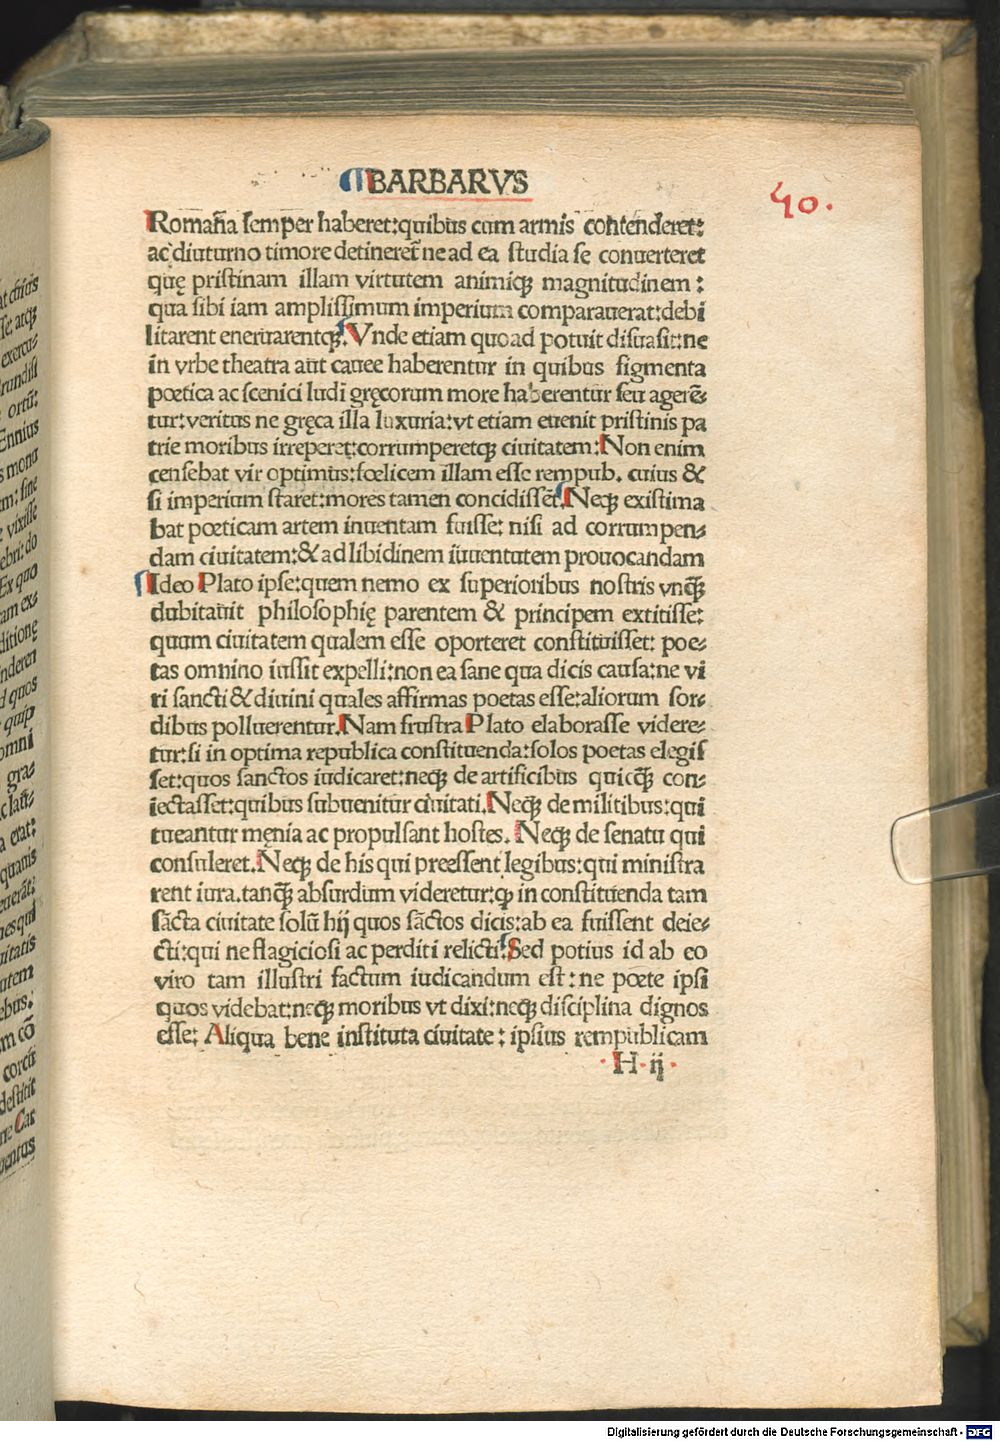 BARBARVS
40.
Romana semper haberet:quibus cum armis contenderet:
ac diuturno timore detineret̄ ne ad ea studia se conuerteret
quę pristinam illam virtutem animiqꝫ magnitudinem :
qua sibi iam amplissimum imperium comparauerat:debi
litarent eneruarentqꝫ. Vnde etiam quoad potuit disuasit:ne
in vrbe theatra aut cauee haberentur in quibus figmenta
poetica ac scenici ludi gręcorum more haberentur seu agerē⸗
tur:veritus ne gręca illa luxuria:vt etiam euenit pristinis pa
trie moribus irreperet:corrumperetqꝫ ciuitatem:Non enim
censebat vir optimus:fœlicem illam esse rempub. cuius &
si imperium staret:mores tamen concidissēt.Neqꝫ existima
bat poeticam artem inuentam fuisse: nisi ad corrumpen⸗
dam ciuitatem:& ad libidinem iuuentutem prouocandam
Ideo Plato ipse:quem nemo ex superioribus nostris vnqꝫ̄
dubitauit philosophię parentem & principem extitisse:
quum ciuitatem qualem esse oporteret constituisset: poe⸗
tas omnino iussit expelli:non ea sane qua dicis causa:ne vi
ri sancti & diuini quales affirmas poetas esse:aliorum sor⸗
dibus polluerentur.Nam frustra Plato elaborasse videre⸗
tur:si in optima republica constituenda:solos poetas elegis
set:quos sanctos iudicaret:neqꝫ de artificibus quicqꝫ̄ con⸗
iectasset:quibus subuenitur ciuitati.Neqꝫ de militibus:qui
tueantur męnia ac propulsant hostes. Neqꝫ de senatu qui
consuleret.Neqꝫ de his qui preessent legibus:qui ministra
rent iura.tanqꝫ̄ absurdum videretur:ꝙ in constituenda tam
sācta ciuitate solū hij quos sāctos dicis:ab ea fuissent deie⸗
cti:qui ne flagiciosi ac perditi relicti?Sed potius id ab eo
viro tam illustri factum iudicandum est : ne poete ipsi
quos videbat:neqꝫ moribus vt dixi:neqꝫ disciplina dignos
esse: Aliqua bene instituta ciuitate : ipsius rempublicam
· H · ij ·
Digitalisierung gefördert durch die Deutsche Forschungsgemeinschaft - DFG